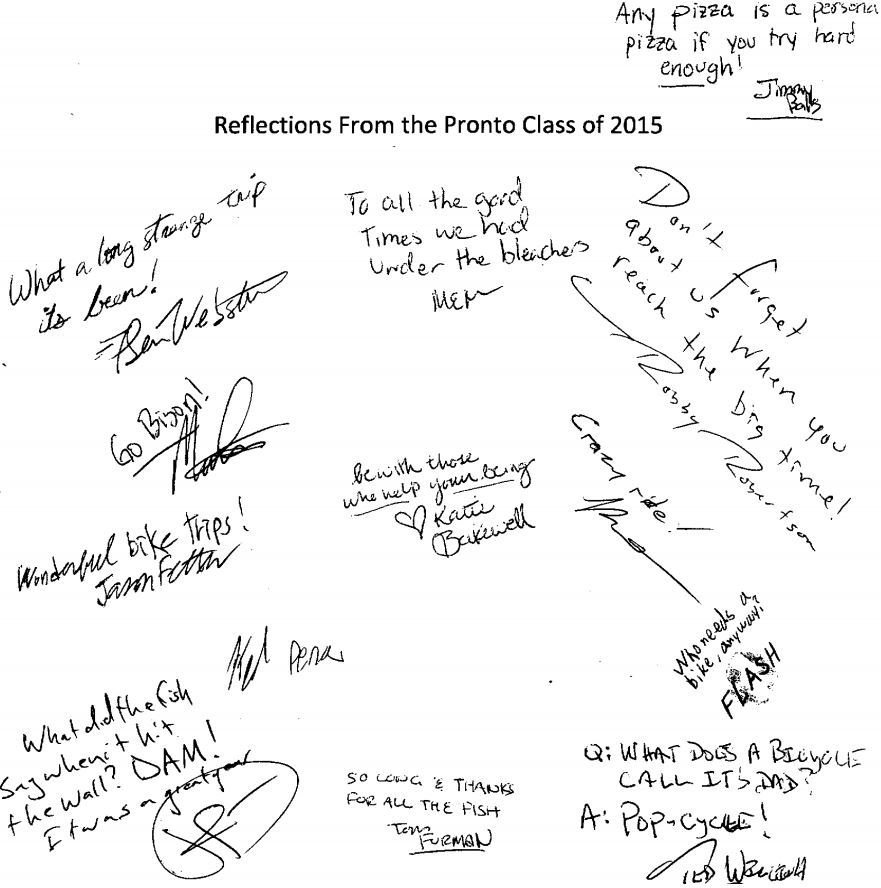 Any pizza is a persona
pizza if you try hard
enough!
Jimmy
Balls
Reflections From the Pronto Class of 2015
What a long strange trip
its been!
Ben Webster
To all the good
Times we had
Under the bleachers
MEM
Don't forget
about us when you
reach the big time!
Robby Robertson
Go Bison!
be with those
who help your being
Katie
Bakewell
Crazy ride!
Wonderful bike trips!
Jason Fetter
Pena
Who needs a
bike, anyway?
FLASH
What did the fish
Say when it hit
the wall? DAM!
It was a great year
SO LONG & THANKS
FOR ALL THE FISH
Tom
FURMAN
Q: WHAT DOES A BICYCLE
CALL IT'S DAD?
A: POP-CYCLE!
TED